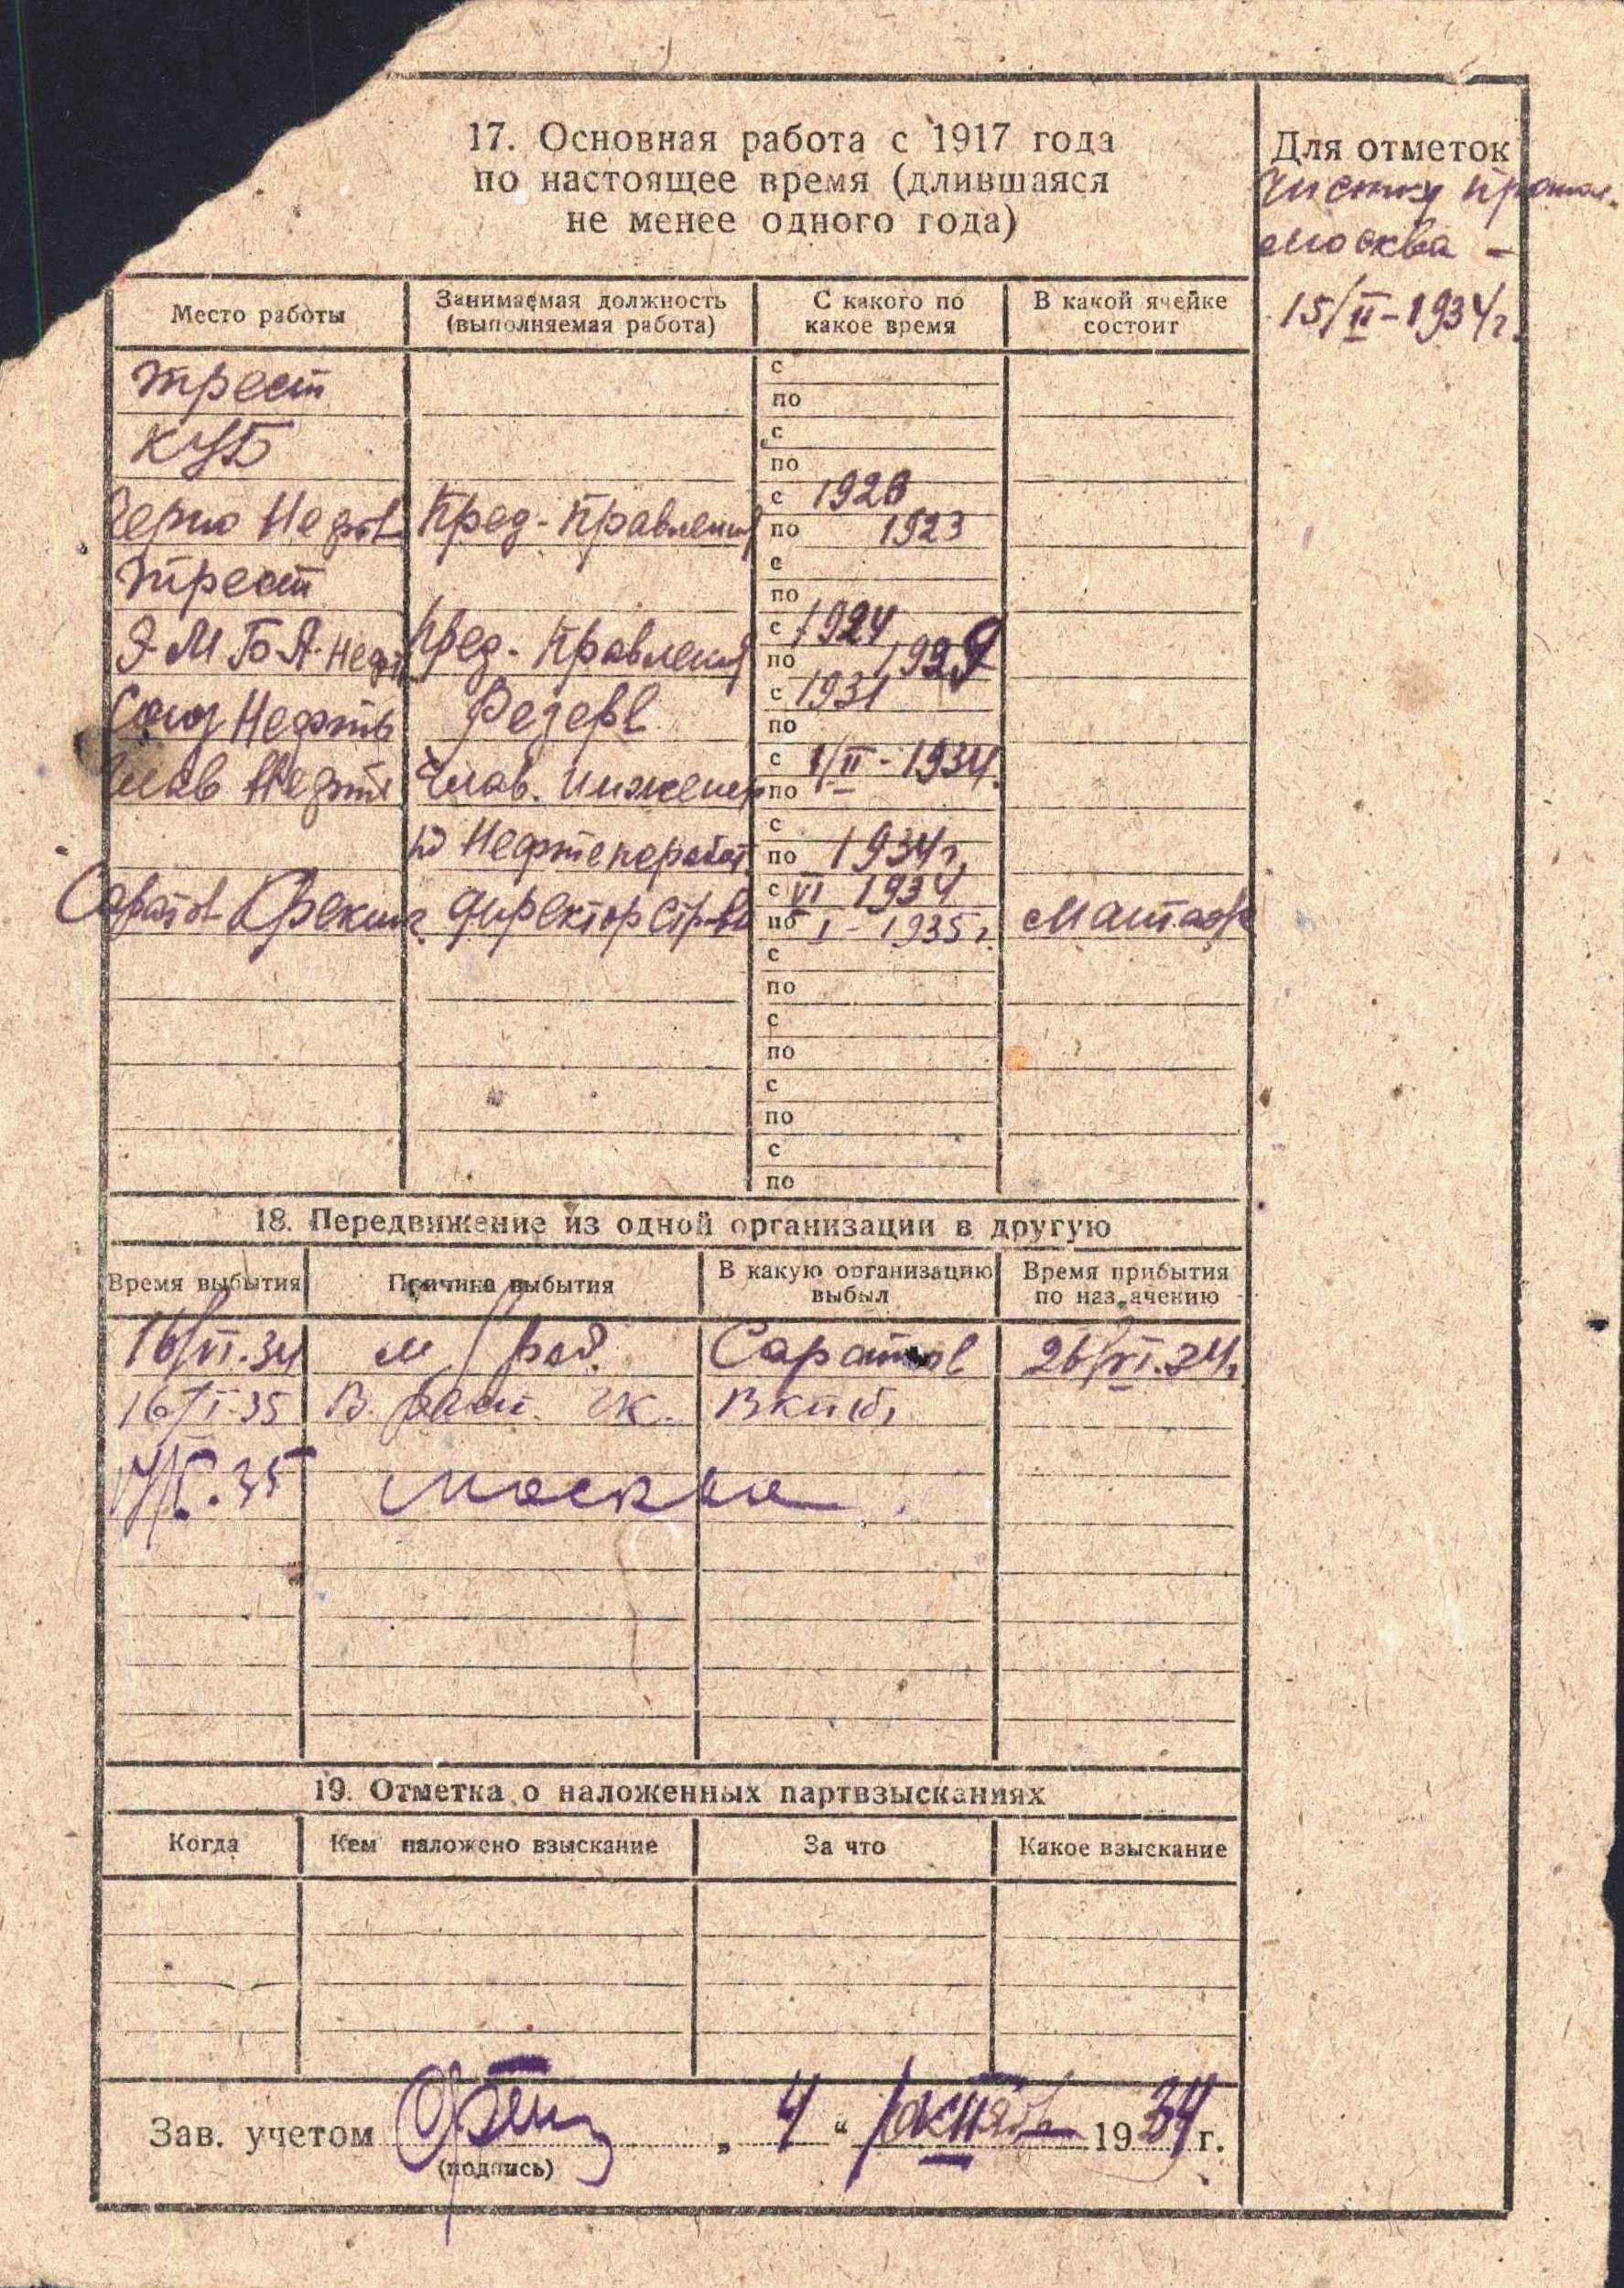 17. Основная работа с 1917 года
по настоящее время (длившаяся
не менее одного года)
Для отметок
Чистку
Москва -
15/II-1934г.
Место работы
Занимаемая должность
(выполняемая работа)
С какого по
какое время
В какой ячейке
состоит
трест
с
по
с
по
с 1920
Пред-Правления
по 1923
трест
с
по
Э-М Б-А-Нефт
Пред-Правления
с 1924
по 1929
Союз Нефть
Резерв
с 1931
по
Глав Нефть
Глав. инженер
с 1/II-1934.
по
с
по Нефтеперабот
по 1934г.
Саратов Крекинг
директор стр-ва
с VI 1934
по I-1935г.
с
по
с
по
с
по
с
по
18. Передвижение из одной организации в другую
Время выбытия
Причина выбытия
В какую организацию
выбыл
Время прибытия
по назначению
16/VI.34
Саратов
26/VI.34г.
16/I-35
В
ВКП(б)
35
Москва
19. Отметка о наложенных партвзысканиях
Когда
Кем наложено взыскание
За что
Какое взыскание
Зав. учетом
„ 4 “ октября 1934 г.
(подпись)